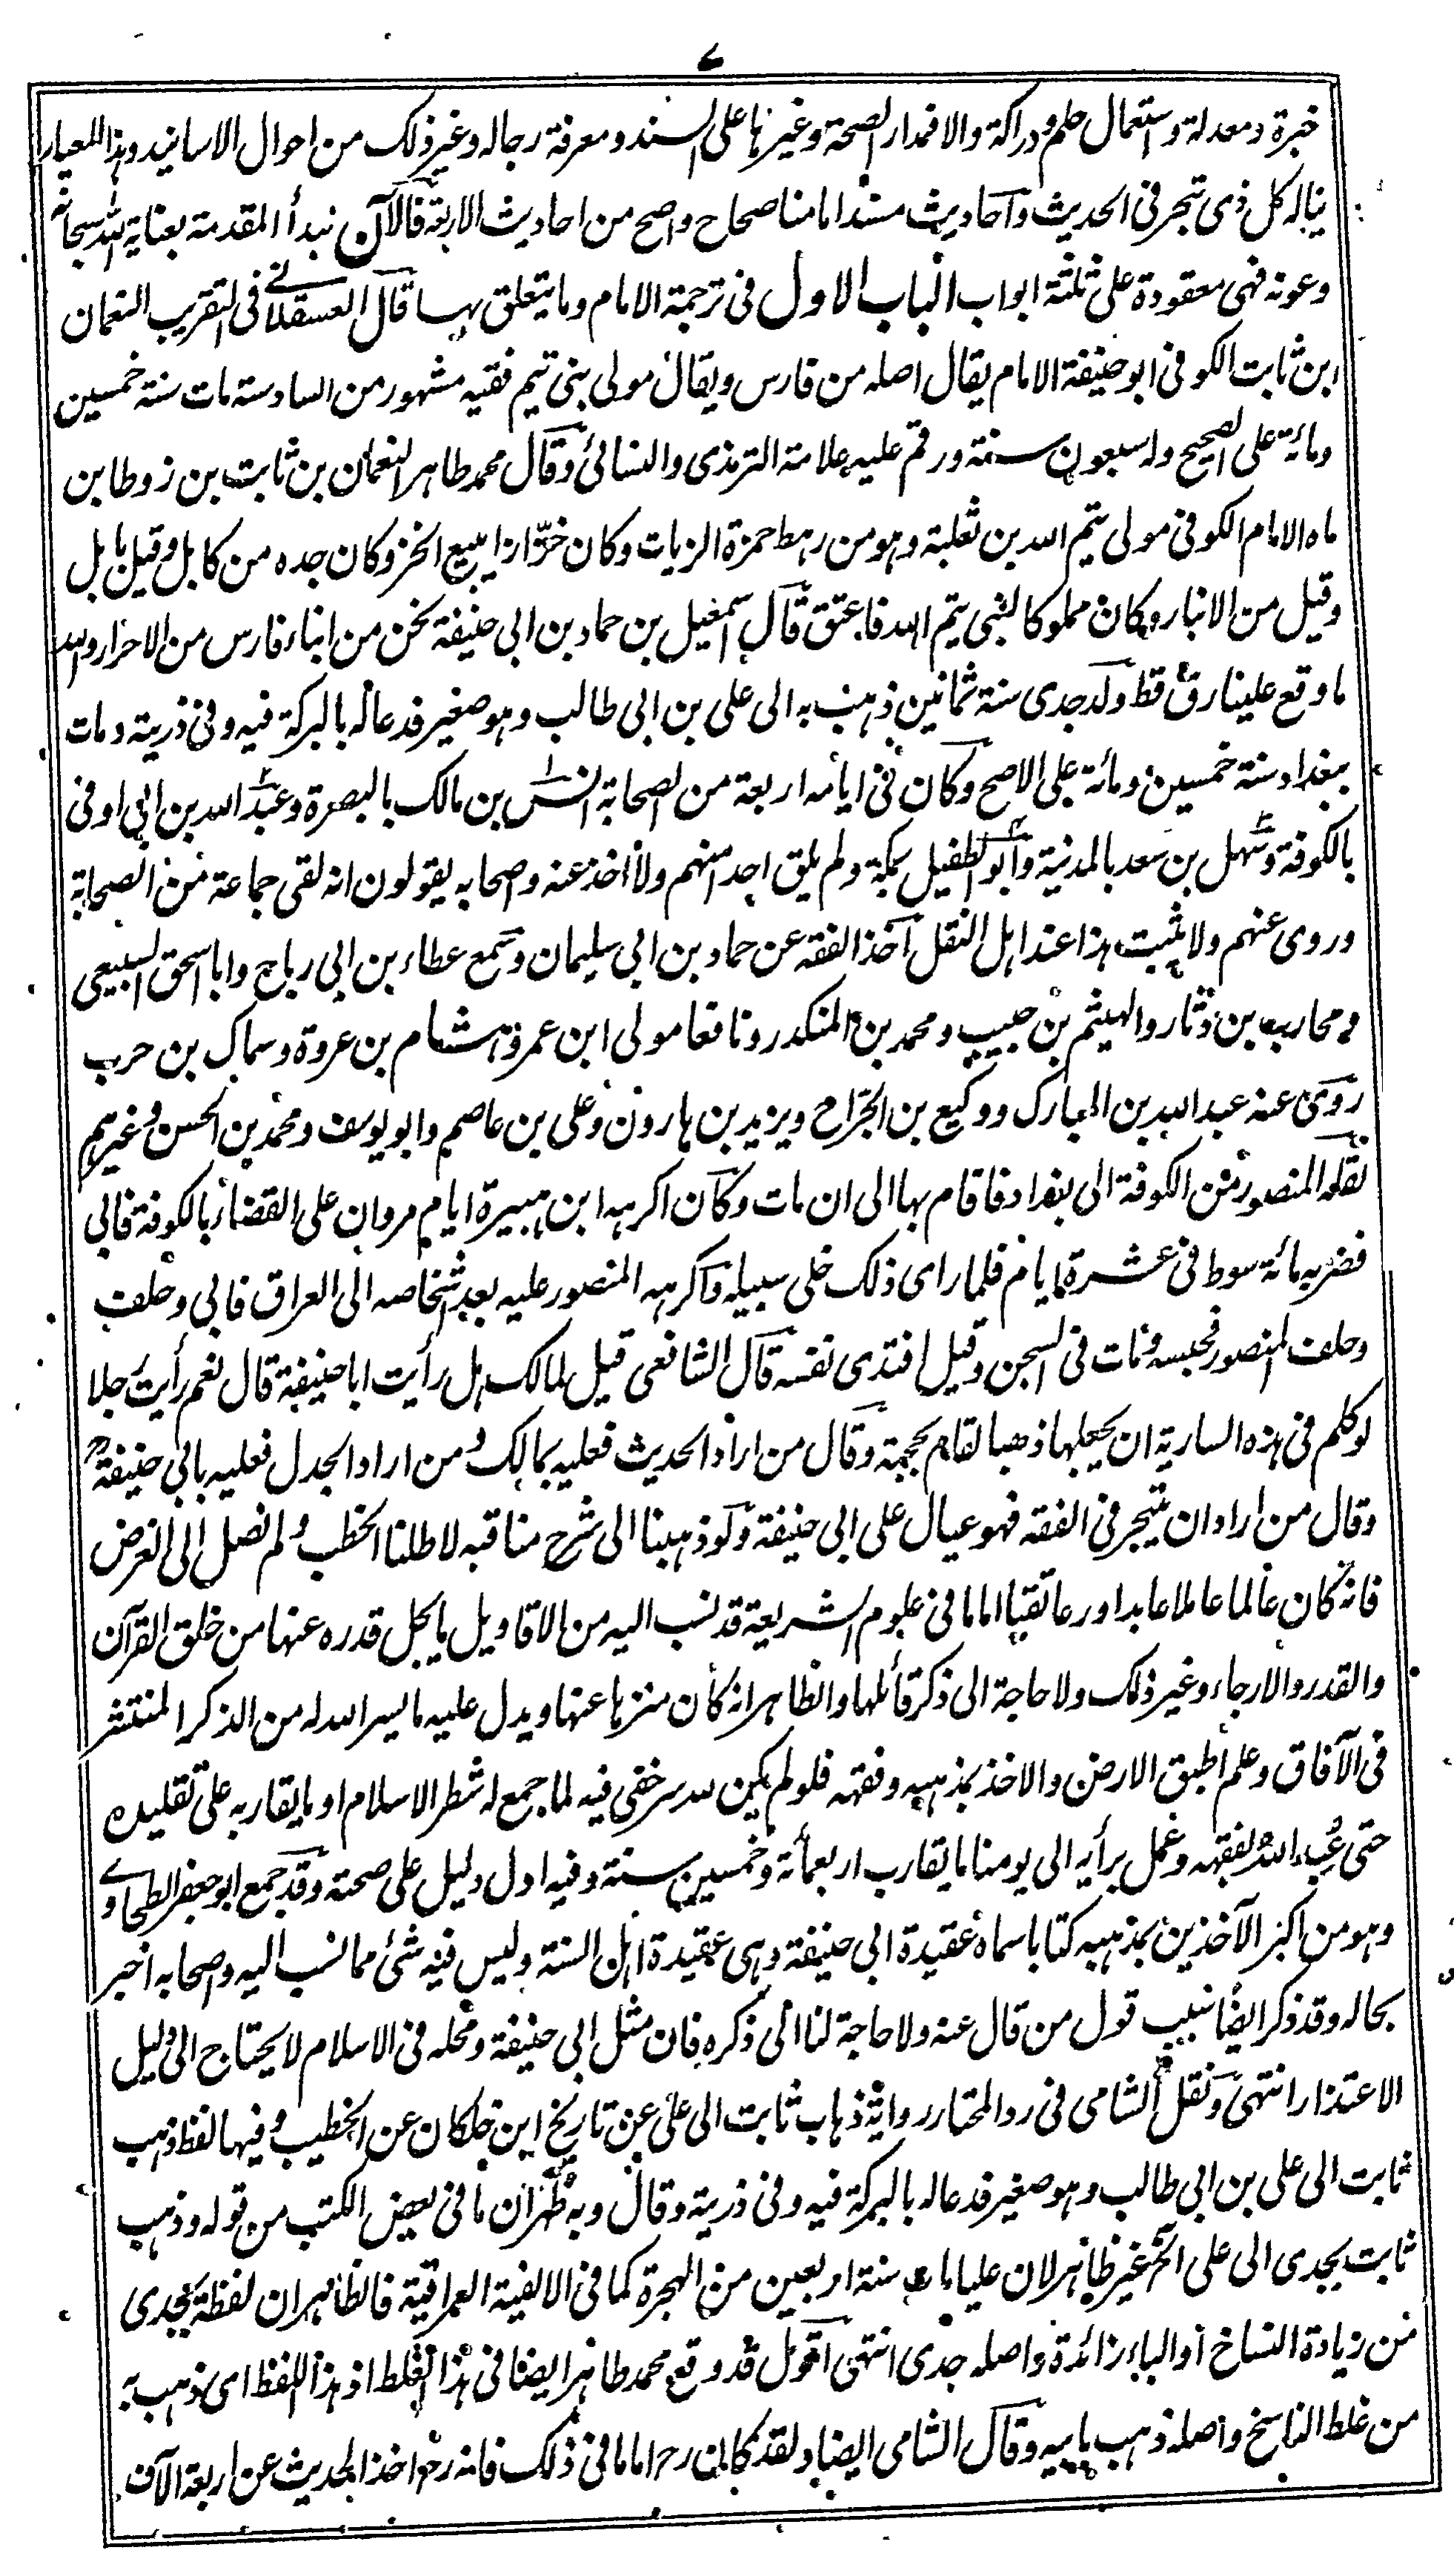 ٧
خبرة ومعدلة واستعمال حلم ودراكة والاقدار الصحة وغيرها على السند ومعرفة رجاله وغير ذلك من احوال الاسانيد وهذا المعيار
يناله كل ذى تبحر فى الحديث وآحاديث مسند امامنا صحاح واصح من احاديث الاربعة فالآن نبدأ المقدمة بعناية الله سبحانه
وعونه فهى معقودة على ثلثة ابواب الباب الاول فى ترجمة الامام وما يتعلق بها قال العسقلانى فى التقريب النعمان
ابن ثابت الكوفى ابو حنيفة الامام يقال اصله من فارس ويقال مولى بنى تيم فقيه مشهور من السادسة مات سنة خمسين
ومائة على الصحيح وله سبعون سنة ورقم عليه علامة الترمذى والنسائى وقال محمد طاهر النعمان بن ثابت بن زوطا بن
ماه الامام الكوفى مولى تيم الله بن ثعلبة وهو من رهط حمزة الزيات وكان خزّازا يبيع الخز وكان جده من كابل وقيل بابل
وقيل من الانبار وكان مملوكا لبنى تيم الله فاعتق قال اسمعيل بن حماد بن ابى حنيفة نحن من ابناء فارس من الاحرار والله
ما وقع علينا رق قط ولد جدى سنة ثمانين ذهب به الى على بن ابى طالب وهو صغير فدعا له بالبركة فيه وفى ذريته ومات
ببغداد سنة خمسين ومائة على الاصح وكان فى ايامه اربعة من الصحابة انس بن مالك بالبصرة وعبد الله بن ابى اوفى
بالكوفة وسهل بن سعد بالمدينة وابو الطفيل بمكة ولم يلق احدا منهم ولا اخذ عنه واصحابه يقولون انه لقى جماعة من الصحابة
وروى عنهم ولا يثبت هذا عند اهل النقل اخذ الفقه عن حماد بن ابى سليمان وسمع عطاء بن ابى رباح وابا اسحق السبيعى
ومحارب بن دثار والهيثم بن حبيب ومحمد بن المنكدر ونافعا مولى ابن عمر وهشام بن عروة وسماك بن حرب
روى عنه عبد الله بن المبارك ووكيع بن الجرّاح ويزيد بن هارون وعلى بن عاصم وابو يوسف ومحمد بن الحسن وغيرهم
نقله المنصور من الكوفة الى بغداد فاقام بها الى ان مات وكان اكرهه ابن هبيرة ايام مروان على القضاء بالكوفة فابى
فضربه مائة سوط فى عشرة ايام فلما راى ذلك خلى سبيله واكرهه المنصور عليه بعد اشخاصه الى العراق فابى وحلف
وحلف المنصور فحبسه ومات فى السجن وقيل افتدى نفسه قال الشافعى قيل لمالك هل رأيت ابا حنيفة قال نعم رأيت رجلا
لو كلم فى هذه السارية ان يجعلها ذهبا لقام بحجته وقال من اراد الحديث فعليه بمالك ومن اراد الجدل فعليه بابى حنيفة
وقال من اراد ان يتبحر فى الفقه فهو عيال على ابى حنيفة ولو ذهبنا الى شرح مناقبه لاطلنا الخطب ولم نصل الى الغرض
فانه كان عالما عاملا عابدا ورعا تقيا اماما فى علوم الشريعة قد نسب اليه من الاقاويل ما يجل قدره عنها من خلق القرآن
والقدر والارجاء وغير ذلك ولا حاجة الى ذكر قائلها والظاهر انه كان منزها عنها ويدل عليه ما يسر الله له من الذكر المنتشر
فى الآفاق وعلم اطبق الارض والاخذ بمذهبه وفقهه فلو لم يكن لله سر خفى فيه لما جمع له شطر الاسلام او ما يقاربه على تقليده
حتى عُبد الله بفقهه وعمل برأيه الى يومنا ما يقارب اربعمائة وخمسين سنة وفيه ادل دليل على صحته وقد جمع ابو جعفر الطحاوى
وهو من اكبر الآخذين بمذهبه كتابا سماه عقيدة ابى حنيفة وهى عقيدة اهل السنة وليس فيه شئ مما نسب اليه واصحابه اخبر
بحاله وقد ذكر ايضا سبب قول من قال عنه ولا حاجة لنا الى ذكره فان مثل ابى حنيفة ومحله فى الاسلام لا يحتاج الى دليل
الاعتذار انتهى ونقل الشامى فى رد المحتار رواية ذهاب ثابت الى على عن تاريخ ابن خلكان عن الخطيب وفيها لفظ ذهب
ثابت الى على بن ابى طالب وهو صغير فدعا له بالبركة فيه وفى ذريته وقال وبه ظهر ان ما فى بعض الكتب من قوله وذهب
ثابت بجدى الى على الخ غير ظاهر لان عليا مات سنة اربعين من الهجرة كما فى الالفية العراقية فالظاهر ان لفظة بجدى
من زيادة النساخ او الباء زائدة واصله جدى انتهى اقول قد وقع محمد طاهر ايضا فى هذا الغلط اذ هذا اللفظ اى ذهب به
من غلط الناسخ واصله ذهب بابيه وقال الشامى ايضا ولقد كان رح اماما فى ذلك فانه رح اخذ الحديث عن اربعة الآف